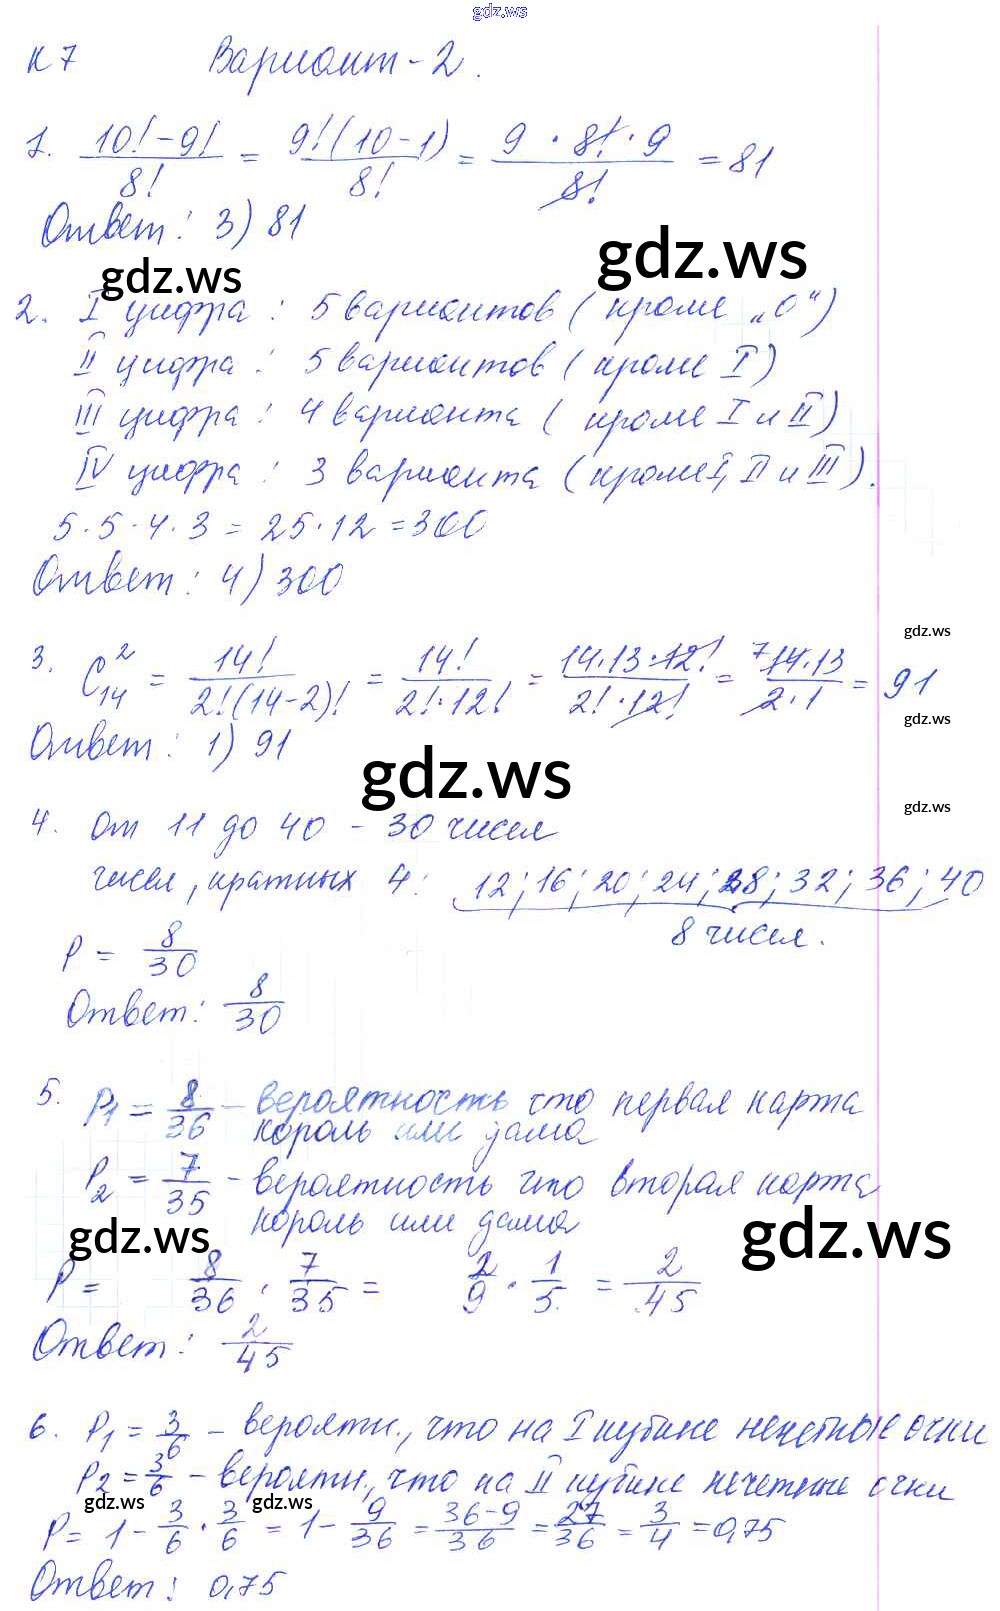 gdz.ws
К 7 Вариант - 2.
1. (10! - 9!)/8! = 9!(10 - 1)/8! = (9 · 8! · 9)/8! = 81
Ответ: 3) 81
gdz.ws gdz.ws
2. I цифра: 5 вариантов (кроме „0“)
II цифра: 5 вариантов (кроме I)
III цифра: 4 варианта (кроме I и II)
IV цифра: 3 варианта (кроме I, II и III).
5 · 5 · 4 · 3 = 25 · 12 = 300
Ответ: 4) 300
gdz.ws
3. C₁₄² = 14!/(2!(14-2)!) = 14!/(2! · 12!) = (14 · 13 · 12!)/(2! · 12!) = ⁷ (14 · 13)/(2 · 1) = 91
gdz.ws
Ответ: 1) 91
gdz.ws
gdz.ws
4. от 11 до 40 - 30 чисел
чисел, кратных 4: 12; 16; 20; 24; 28; 32; 36; 40
8 чисел.
P = 8/30
Ответ: 8/30
5. P₁ = 8/36 - вероятность что первая карта
король или дама
P₂ = 7/35 - вероятность что вторая карта
король или дама
gdz.ws gdz.ws
P = 8/36 · 7/35 = 2/9 · 1/5 = 2/45
Ответ: 2/45
6. P₁ = 3/6 - вероятн., что на I кубике нечетные очки
P₂ = 3/6 - вероятн., что на II кубике нечетные очки
gdz.ws gdz.ws
P = 1 - 3/6 · 3/6 = 1 - 9/36 = (36 - 9)/36 = 27/36 = 3/4 = 0,75
Ответ: 0,75